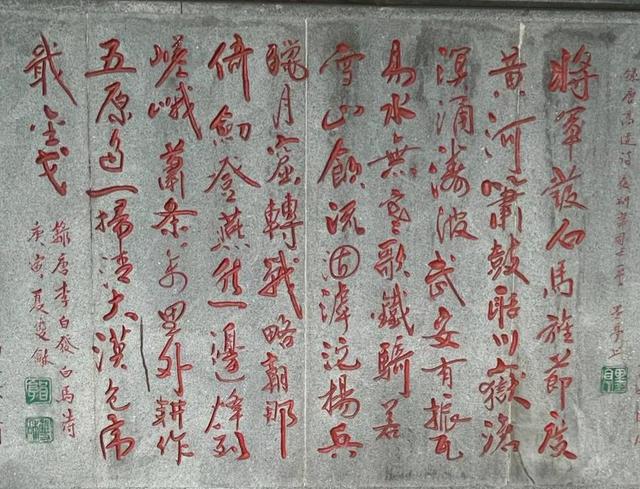 將軍發白馬旌節度
黄河嘯鼓聒川嶽滄
溟涌濤波武安有振瓦
易水無寒歌鐵騎若
雪山飲流涸滹沱揚兵
獵月窟轉戰略朝那
倚劍登燕然邊烽列
嵯峨蕭条万里外耕作
五原多一掃清大漠包虎
戢金戈
錄唐李白發白馬詩
庚寅夏雙